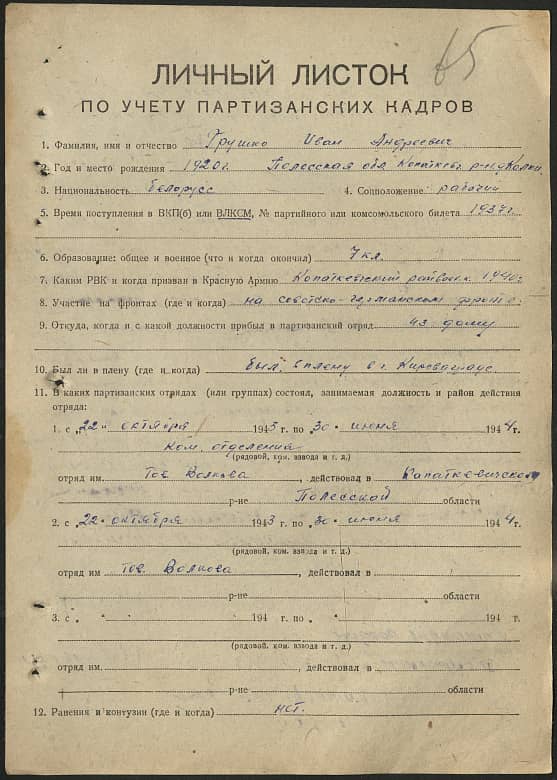 65
ЛИЧНЫЙ ЛИСТОК
ПО УЧЕТУ ПАРТИЗАНСКИХ КАДРОВ
1. Фамилия, имя и отчество Грушко Иван Андреевич
2. Год и место рождения 1920г. Полесская обл
3. Национальность белорусс 4. Соцположение рабочий
5. Время поступления в ВКП(б) или ВЛКСМ, № партийного или комсомольского билета 1937г.
6. Образование: общее и военное (что и когда окончил) 7 кл.
7. Каким РВК и когда призван в Красную Армию 1940г.
8. Участие на фронтах (где и когда) на советско-германском фронте
9. Откуда, когда и с какой должности прибыл в партизанский отряд из дому
10. Был ли в плену (где и когда) был в плену в г.
11. В каких партизанских отрядах (или группах) состоял, занимаемая должность и район действия
отряда:
1. с „22" октября 1943 г. по „30" июня 1944 г.
Ком. отделения
(рядовой, ком. взвода и т. д.)
отряд им Тов. Волкова, действовал в Копаткевичском
р-не Полесской области
2. с „22" октября 1943 г. по „30" июня 1944 г.
(рядовой, ком. взвода и т. д.)
отряд им Тов. Волкова, действовал в
р-не области
3. с „ " 194 г. по „ " 194 г.
(рядовой, ком. взвода и т. д.)
отряд им. , действовал в
р-не области
12. Ранения и контузии (где и когда) нет.